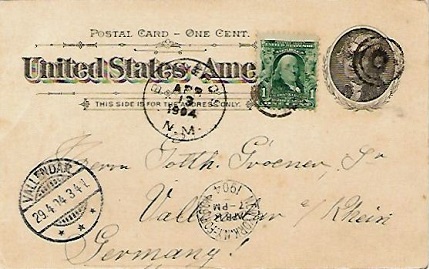 POSTAL CARD – ONE CENT.
United States Ame
THIS SIDE IS FOR THE ADDRESS ONLY.
APR
13
1904
N.M.
1 1
VALLENDAR
29.4.04.3-4-
Herrn Gotth. Groener, Sr
Vallendar a/Rhein
Germany!
NEW YORK, N.Y.
APR
-PM
1904